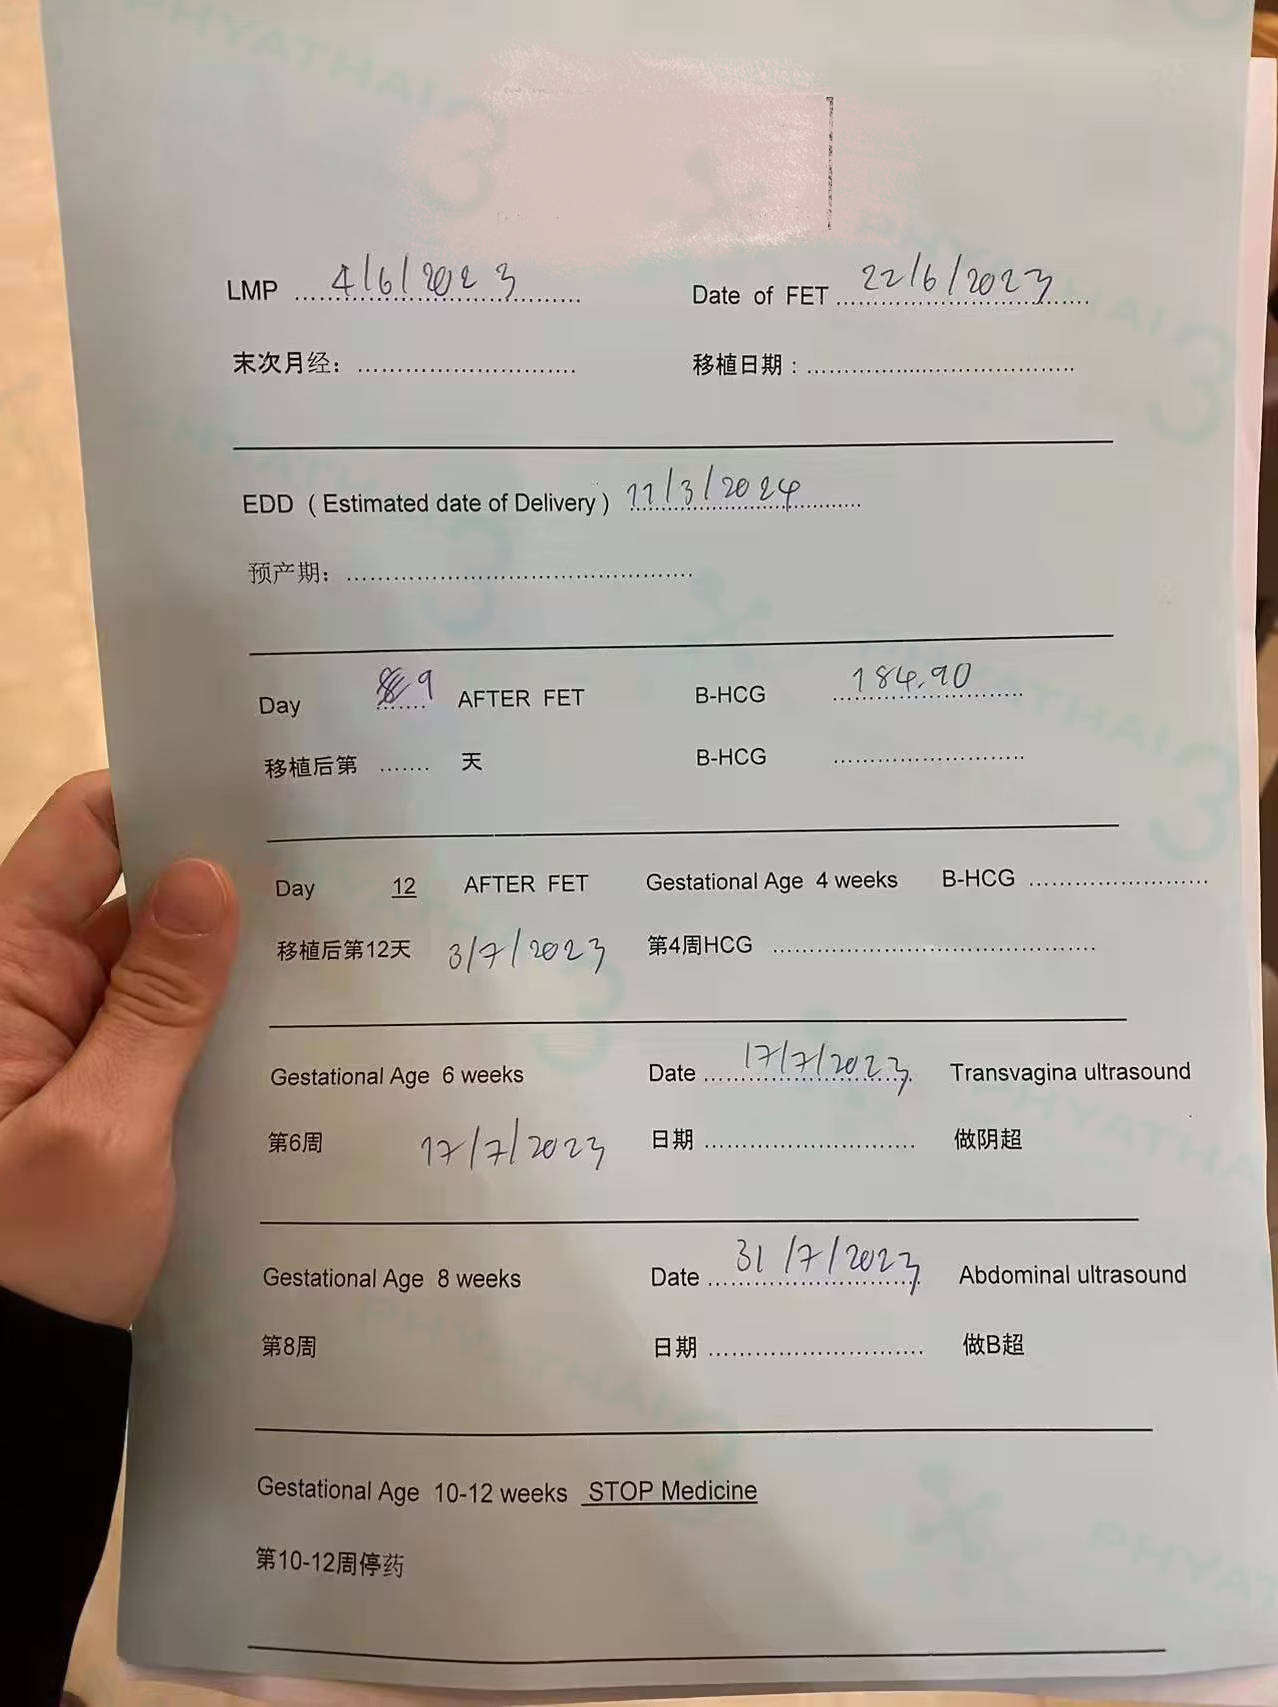 LMP 4/6/2023 Date of FET 22/6/2023
末次月经: 移植日期:
EDD (Estimated date of Delivery) 11/3/2024
预产期:
Day 9 AFTER FET B-HCG 184.90
移植后第 天 B-HCG
Day 12 AFTER FET Gestational Age 4 weeks B-HCG
移植后第12天 3/7/2023 第4周HCG
Gestational Age 6 weeks Date 17/7/2023 Transvagina ultrasound
第6周 17/7/2023 日期 做阴超
Gestational Age 8 weeks Date 31/7/2023 Abdominal ultrasound
第8周 日期 做B超
Gestational Age 10-12 weeks STOP Medicine
第10-12周停药